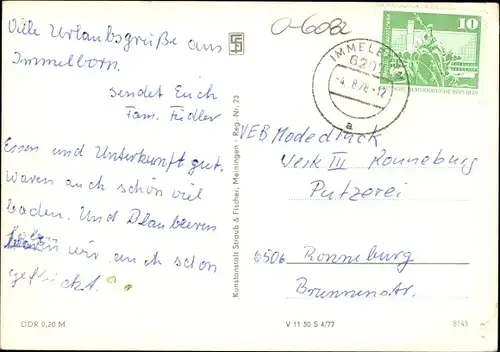 O-6082
Viele Urlaubsgrüße aus
Immelborn.
sendet Euch
Fam. Fidler
Essen und Unterkunft gut.
Waren auch schön viel
baden. Und Blaubeeren
haben wir auch schon
gepflückt.
Kunstanstalt Straub & Fischer, Meiningen · Reg.-Nr. 23
IMMELBORN
6201
-4.-8.78-12
a
10
VEB Modedruck
Werk III Ronneburg
Putzerei
6506 Ronneburg
Brunnenstr.
DDR 0,20 M
V 11 50 S 4/77
8145